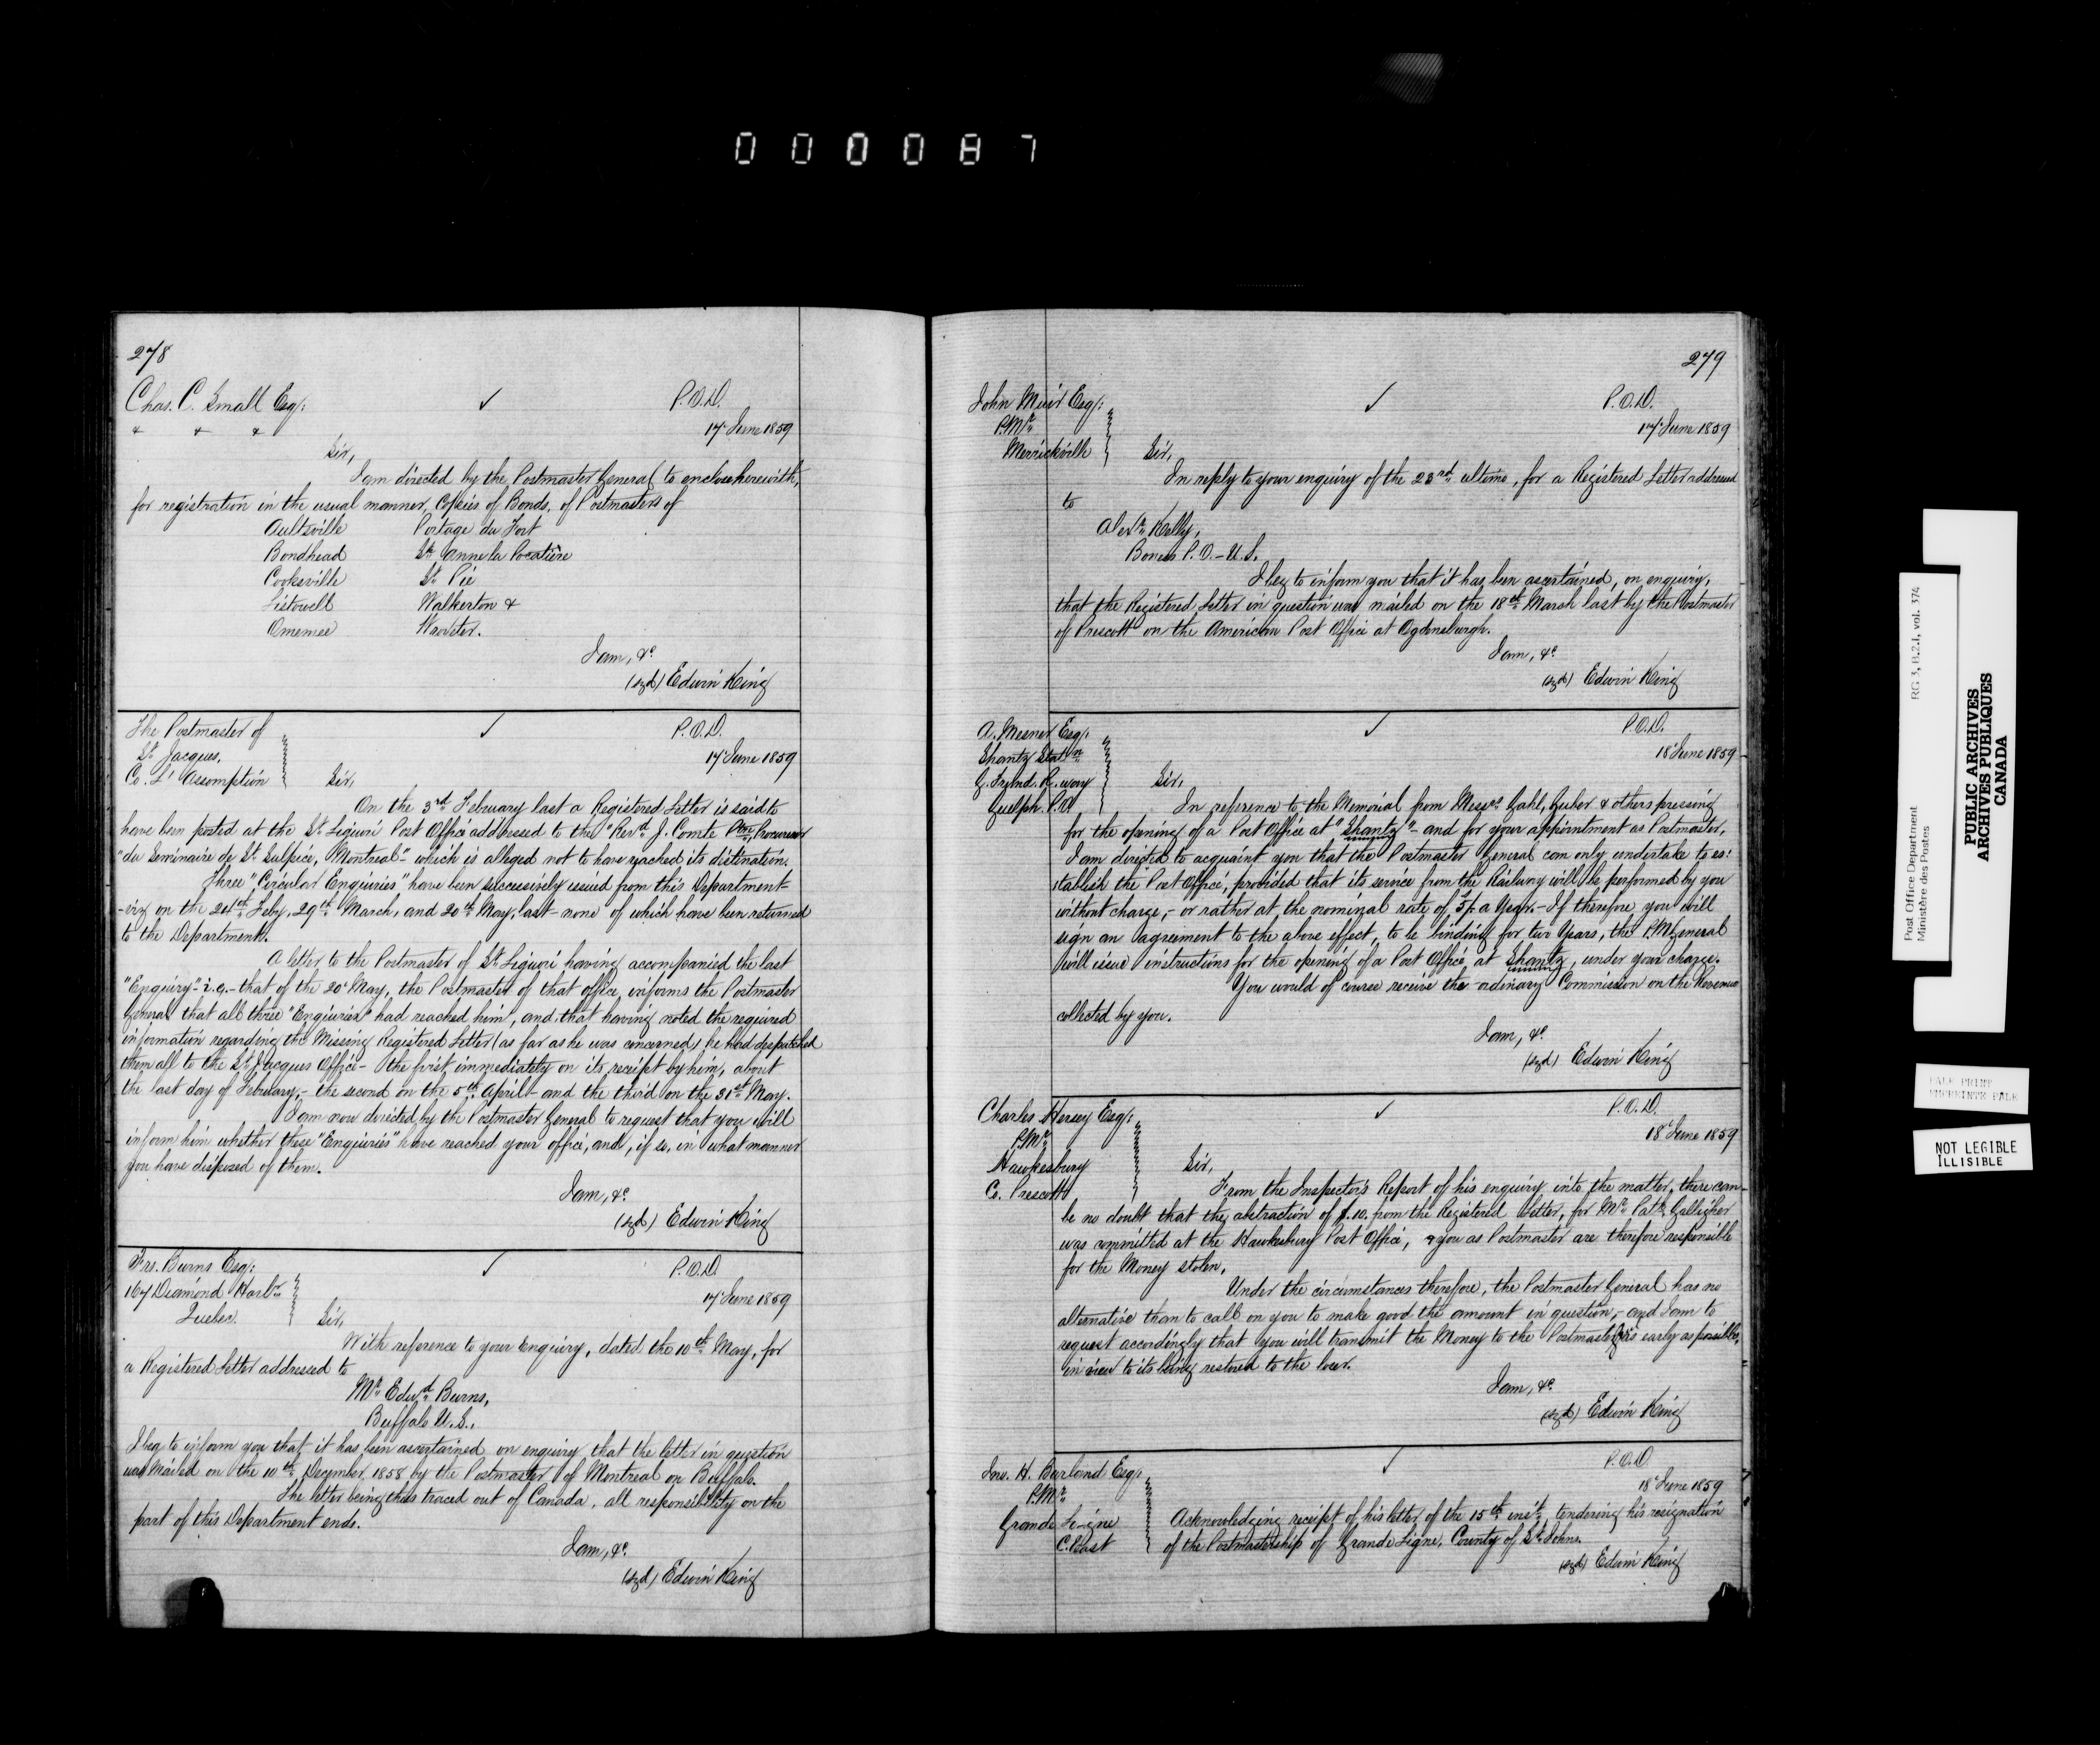 000087
278
Chas. C. Small Esq:
& & &
✓
P.O.D.
17 June 1859
Sir,
I am directed by the Postmaster General to enclose herewith,
for registration in the usual manner, Copies of Bonds, of Postmasters of
Aultsville Portage du Fort
Bondhead St. Anne la Pocatière
Cooksville St. Pie
Listowell Walkerton &
Omemee
I am, &c.
(sgd) Edwin King
The Postmaster of
St. Jacques,
Co. L'Assomption
✓
P.O.D.
17 June 1859
Sir,
On the 3rd February last a Registered Letter is said to
have been posted at the St. Liguori Post Office addressed to the "Revd. J. Comte Ptre, Procureur
"du Seminaire de St. Sulpice, Montreal" - which is alleged not to have reached its distination.
Three "Circular Enquiries" have been successively issued from this Department -
- viz on the 24th Feby, 29th March, and 20th May, last - none of which have been returned
to the Department.
A letter to the Postmaster of St. Liguori having accompanied the last
"Enquiry" - i.e. - that of the 20 May, the Postmaster of that office informs the Postmaster
General that all three "Enquiries" had reached him, and that having noted the required
information regarding the Missing Registered Letter (as far as he was concerned) he had despatched
them all to the St. Jacques Office - the first immediately on its receipt by him, about
the last day of February, - the second on the 5th April - and the third on the 31st May.
I am now directed by the Postmaster General to request that you will
inform him whether these "Enquiries" have reached your office, and, if so, in what manner
you have disposed of them.
I am, &c.
(sgd) Edwin King
Frs. Burns Esq:
167 Diamond Harbr
Quebec.
✓
P.O.D.
17 June 1859
Sir,
With reference to your Enquiry, dated the 10th May, for
a Registered Letter addressed to
Mr. Edwd. Burns,
Buffalo U.S.,
I beg to inform you that it has been ascertained on enquiry that the letter in question
was Mailed on the 10th December 1858 by the Postmaster of Montreal on Buffalo.
The letter being thus traced out of Canada, all responsibility on the
part of this Department ends.
I am, &c.
(sgd) Edwin King
279
John Muir Esq:
P.Mr.
Merrickville
✓
P.O.D.
17 June 1859
Sir,
In reply to your enquiry of the 23rd ultimo, for a Registered Letter addressed
to
Alexr. Kelly,
P.O. - U.S.
I beg to inform you that it has been ascertained, on enquiry,
that the Registered Letter in question was mailed on the 18th March last by the Postmaster
of Prescott on the American Post Office at Ogdensburgh.
I am, &c.
(sgd) Edwin King
A. Mesner Esq:
Shantz Statn
G. Trunk R. way
Guelph. P.O
✓
P.O.D.
18 June 1859
Sir,
In reference to the Memorial from Messrs. Gahl, Guber & others pressing
for the opening of a Post Office at "Shantz" - and for your appointment as Postmaster,
I am directed to acquaint you that the Postmaster General can only undertake to es:
tablish the Post Office, provided that its service from the Railway will be performed by you
without charge, - or rather at the nominal rate of 5/. a Year. - If therefore you will
sign an agreement to the above effect, to be binding for two Years, the P.M General
will issue instructions for the opening of a Post Office at Shantz, under your charge.
You would of course receive the ordinary Commission on the Revenue
collected by you.
I am, &c.
(sgd) Edwin King
Charles Hersey Esq:
P.Mr.
Hawkesbury
Co. Prescott
✓
P.O.D.
18 June 1859
Sir,
From the Inspector's Report of his enquiry into the matter, there can
be no doubt that the abstraction of $.10. from the Registered Letter, for Mr. Patk. Galligher
was committed at the Hawkesbury Post Office, & you as Postmaster are therefore responsible
for the Money stolen.
Under the circumstances therefore, the Postmaster General has no
alternative than to call on you to make good the amount in question, - and I am to
request accordingly that you will transmit the Money to the Postmaster as early as possible,
in view to its being restored to the loser.
I am, &c.
(sgd) Edwin King
Jno. H. Burland Esq:
P.Mr.
Grande Ligne
C. East
✓
P.O.D
18 June 1859
Acknowledging receipt of his letter of the 15th inst. tendering his resignation
of the Postmastership of Grande Ligne, County of St. Johns.
(sgd) Edwin King
Post Office Department RG 3, B.2.1, vol. 374
Ministère des Postes
PUBLIC ARCHIVES
ARCHIVES PUBLIQUES
CANADA
PALE PRINT
NOT LEGIBLE
ILLISIBLE